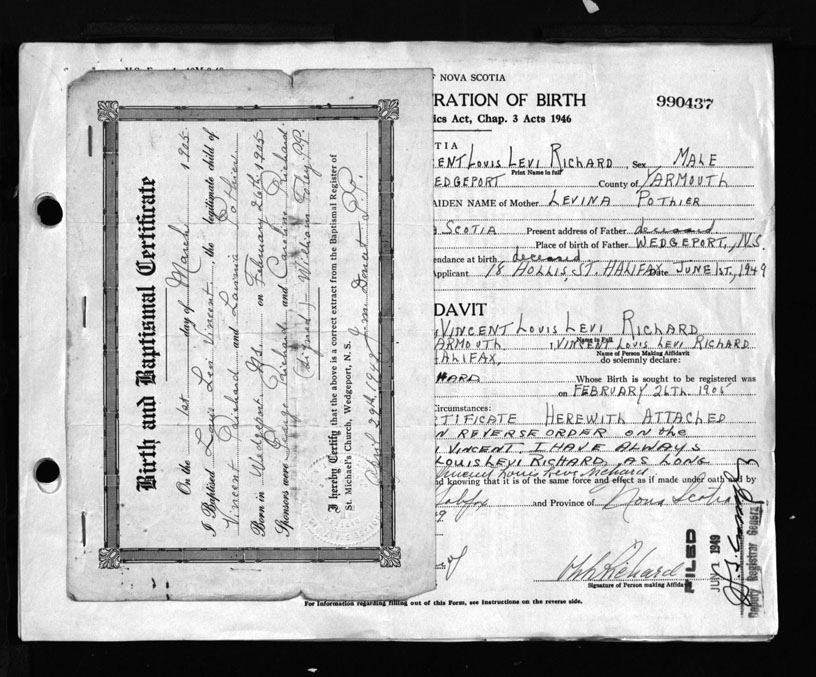 Birth and Baptismal Certificate
On the 1st day of March 1905
I Baptised Louis Levi Vincent, the legitimate child of
Vincent Richard and Pothier
Born in Wedgeport N.S. on February 26th 1905
Sponsors were George Richard and Caroline Richard
(Signed) William Foley, P.P.
I hereby Certify that the above is a correct extract from the Baptismal Register of
St. Michael's Church, Wedgeport, N. S.
April 29th, 1949 P.P.
F NOVA SCOTIA
RATION OF BIRTH 990437
ics Act, Chap. 3 Acts 1946
TIA
ENT LOUIS LEVI RICHARD, Sex MALE
Print Name in full
EDGEPORT County of YARMOUTH
AIDEN NAME of Mother LEVINA POTHIER
SCOTIA Present address of Father deceased
Place of birth of Father WEDGEPORT, N.S.
endance at birth deceased
pplicant 18 HOLLIS, ST. HALIFAX Date JUNE 1ST, 1949
DAVIT
VINCENT LOUIS LEVI RICHARD
Name in Full
ARMOUTH, VINCENT LOUIS LEVI RICHARD
Name of Person Making Affidavit
ALIFAX, do solemnly declare:
HARD Whose Birth is sought to be registered was
on FEBRUARY 26TH 1905
ircumstances:
TIFICATE HEREWITH ATTACHED
N REVERSE ORDER ON the
I VINCENT I HAVE ALWAYS
LOUIS LEVI RICHARD, AS LONG
Vincent Louis Levi Richard
nd knowing that it is of the same force and effect as if made under oath and by
alifax and Province of Nova Scotia
9.
of
Richard
Signature of Person making Affidavit
FILED
JUN 1949
Deputy Registrar General
For Information regarding filling out of this Form, see Instructions on the reverse side.